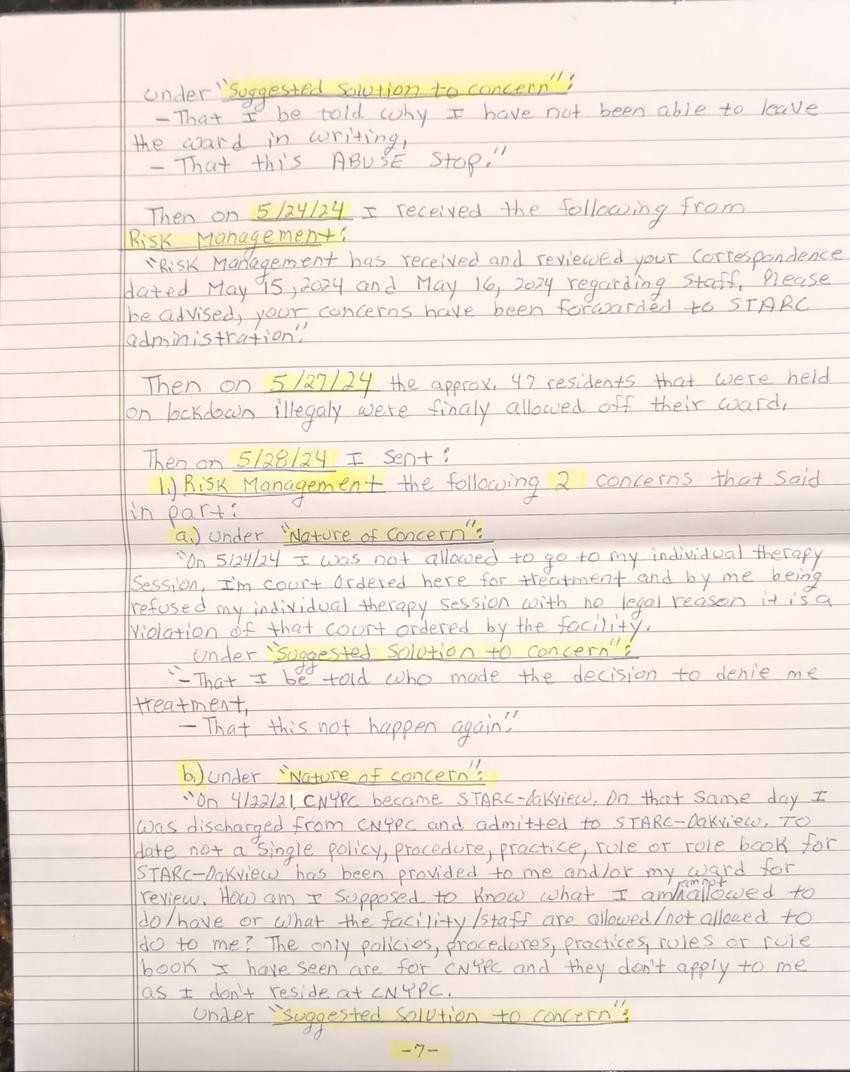 under "Suggested Solution to concern":
- That I be told why I have not been able to leave
the ward in writing,
- That this ABUSE Stop."
Then on 5/24/24 I received the following from
Risk Management:
"Risk Management has received and reviewed your correspondence
dated May 15, 2024 and May 16, 2024 regarding Staff. Please
be advised, your concerns have been forwarded to STARC
administration."
Then on 5/27/24 the approx. 47 residents that were held
on lockdown illegaly were finaly allowed off their ward.
Then on 5/28/24 I Sent:
1.) Risk Management the following 2 concerns that said
in part:
a.) under "Nature of Concern":
"On 5/24/24 I was not allowed to go to my individual therapy
Session. I'm court Ordered here for treatment and by me being
refused my individual therapy session with no legal reason it is a
violation of that court ordered by the facility.
under "Suggested Solution to concern":
"- That I be told who made the decision to denie me
treatment,
- That this not happen again."
b.) under "Nature of concern":
"On 4/22/21, CNYPC became STARC-Oakview. On that same day I
was discharged from CNYPC and admitted to STARC-Oakview. To
date not a single policy, procedure, practice, rule or role book for
STARC-Oakview has been provided to me and/or my ward for
review. How am I supposed to know what I am/am not allowed to
do/have or what the facility/staff are allowed/not allowed to
do to me? The only policies, procedures, practices, rules or rule
book I have seen are for CNYPC and they don't apply to me
as I don't reside at CNYPC.
under "Suggested Solution to concern":
-7-